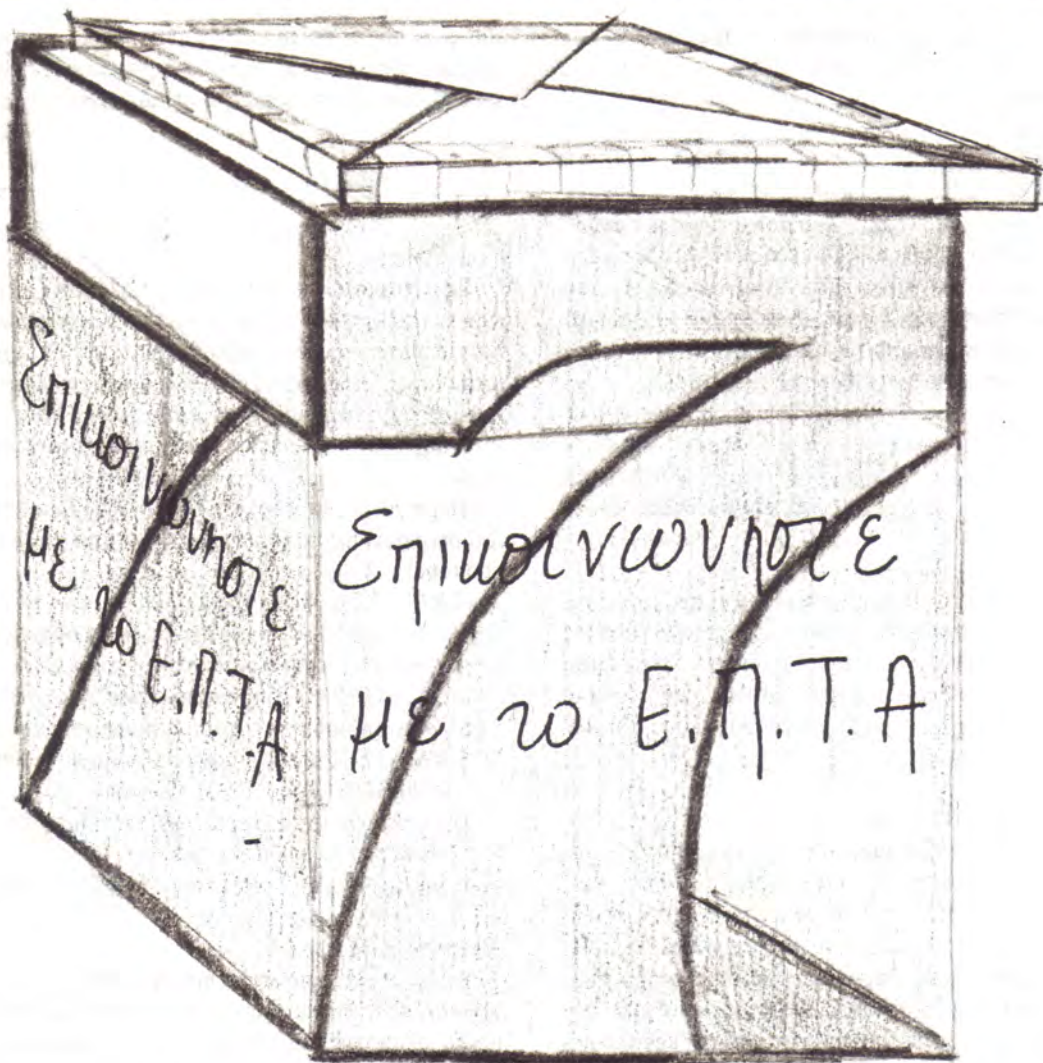 Επικοινωνηστε
με το Ε.Π.Τ.Α
Επικοινωνηστε
με το Ε.Π.Τ.Α